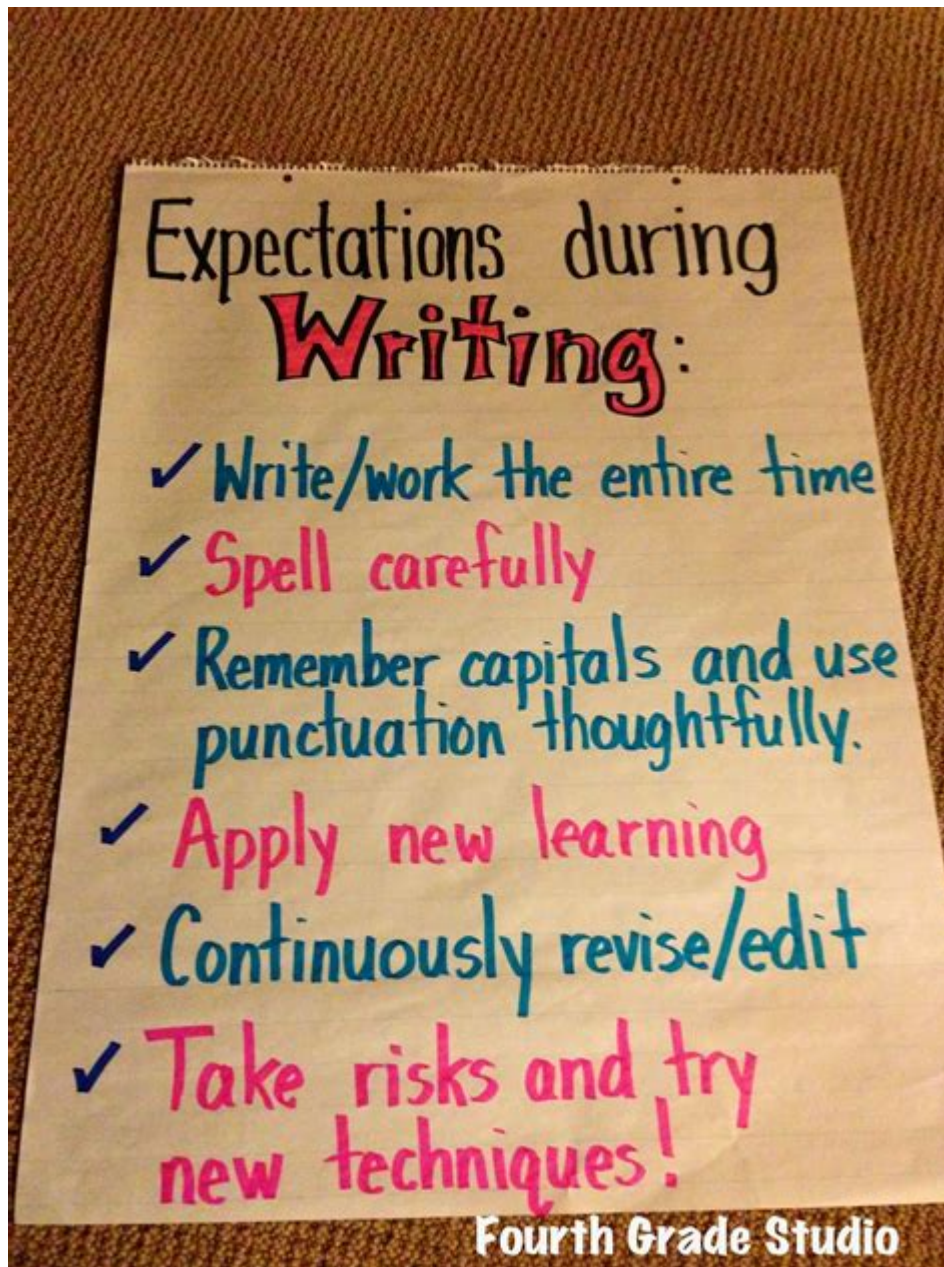 Expectations during
Writing:
✓ Write/work the entire time
✓ Spell carefully
✓ Remember capitals and use
punctuation thoughtfully.
✓ Apply new learning
✓ Continuously revise/edit
✓ Take risks and try
new techniques!
Fourth Grade Studio